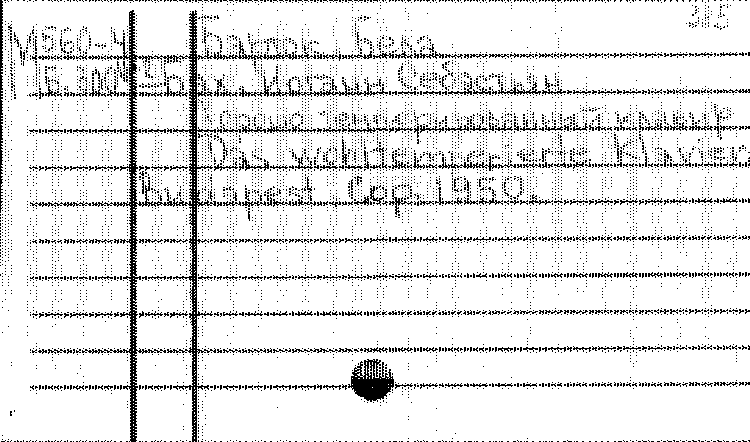 315
М560-4 Барток, Бела
Бах, Иоганн Себастьян
Хорошо темперированный клавир
Das wohltemperierte Klavier
Budapest Cop. 1950.